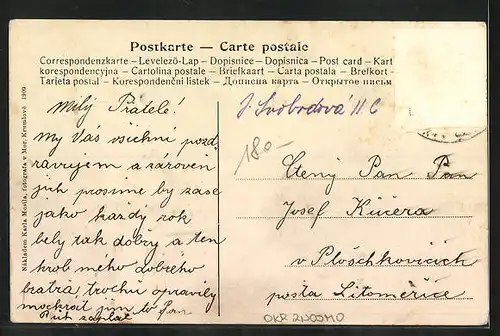 Postkarte — Carte postale
Correspondenzkarte – Levelező-Lap – Dopisnice – Dopisnica – Post card – Kart
korespondencyjna – Cartolina postale – Briefkaart – Carta postala – Brefkort –
Tarjeta postal – Korespondenční listek – Дописна карта – Открытое письм
Nákladem Karla Mosíla, fotografa v Mor. Krumlově 1909
Milý Přatelé!
My Vás všichni pozd
ravujem a zároven
jich prosime by zase
jako každy rok
byly tak dobry a ten
hrob mého dobrého
bratra, trochu opravily
mockrát jim to Pan
Bůh zaplať
J. Svobodová II C
180-
Ctěný Pan Pan
Josef Kučera
v Ploschkovicich
pošta Litoměřice
OKR ZNOJMO